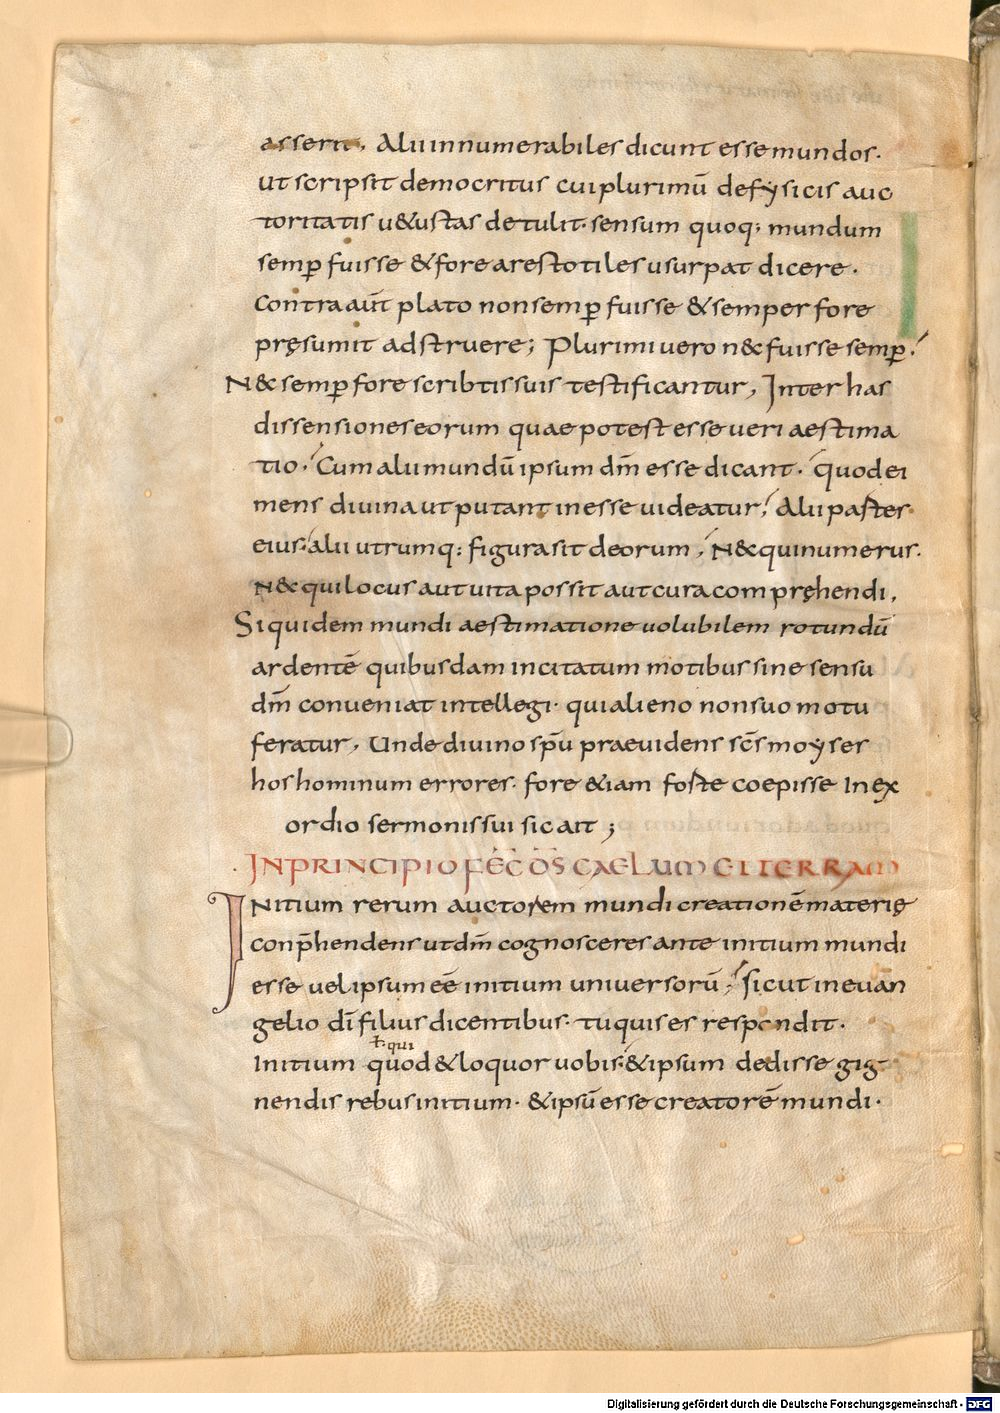 asserit, Alii innumerabiles dicunt esse mundos.
ut scripsit democritus cui plurimū defysicis auc
toritatis u&ustas detulit. sensum quoq; mundum
semꝑ fuisse & fore arestotiles usurpat dicere.
Contra aūt plato non semꝑ fuisse & semper fore
pręsumit adstruere; Plurimi uero n&fuisse semꝑ.
N& semꝑ fore scribtis suis testificantur, Inter has
dissensiones eorum quae potest esse ueri aestima
tio. Cum alii mundū ipsum dm̄ esse dicant. quod ei
mens diuina ut putant inesse uideatur. Alii partes
eius. alii utrumq: figura sit deorum, N& qui numerus.
N& qui locus aut uita possit aut cura compręhendi,
Siquidem mundi aestimatione uolubilem rotundū
ardentē quibusdam incitatum motibus sine sensu
dm̄ conueniat intellegi. qui alieno non suo motu
feratur, Unde diuino sp̄u praeuidens sc̄s moyses
hos hominum errores. fore &iam foste coepisse In ex
ordio sermonis sui sic ait;
IN PRINCIPIO FĒC D̄S CAELUM ET TERRAM
INitium rerum auctorem mundi creationē materię
conp̄hendens ut dm̄ cognosceres ante initium mundi
esse uel ipsum eē initium uniuersorū, sicut in euān
gelio dī filius dicentibus. tu quis es respondit.
ł. qui
Initium quod & loquor uobis. & ipsum dedisse gig
nendis rebus initium. & ipsū esse creatorē mundi.
Digitalisierung gefördert durch die Deutsche Forschungsgemeinschaft - DFG